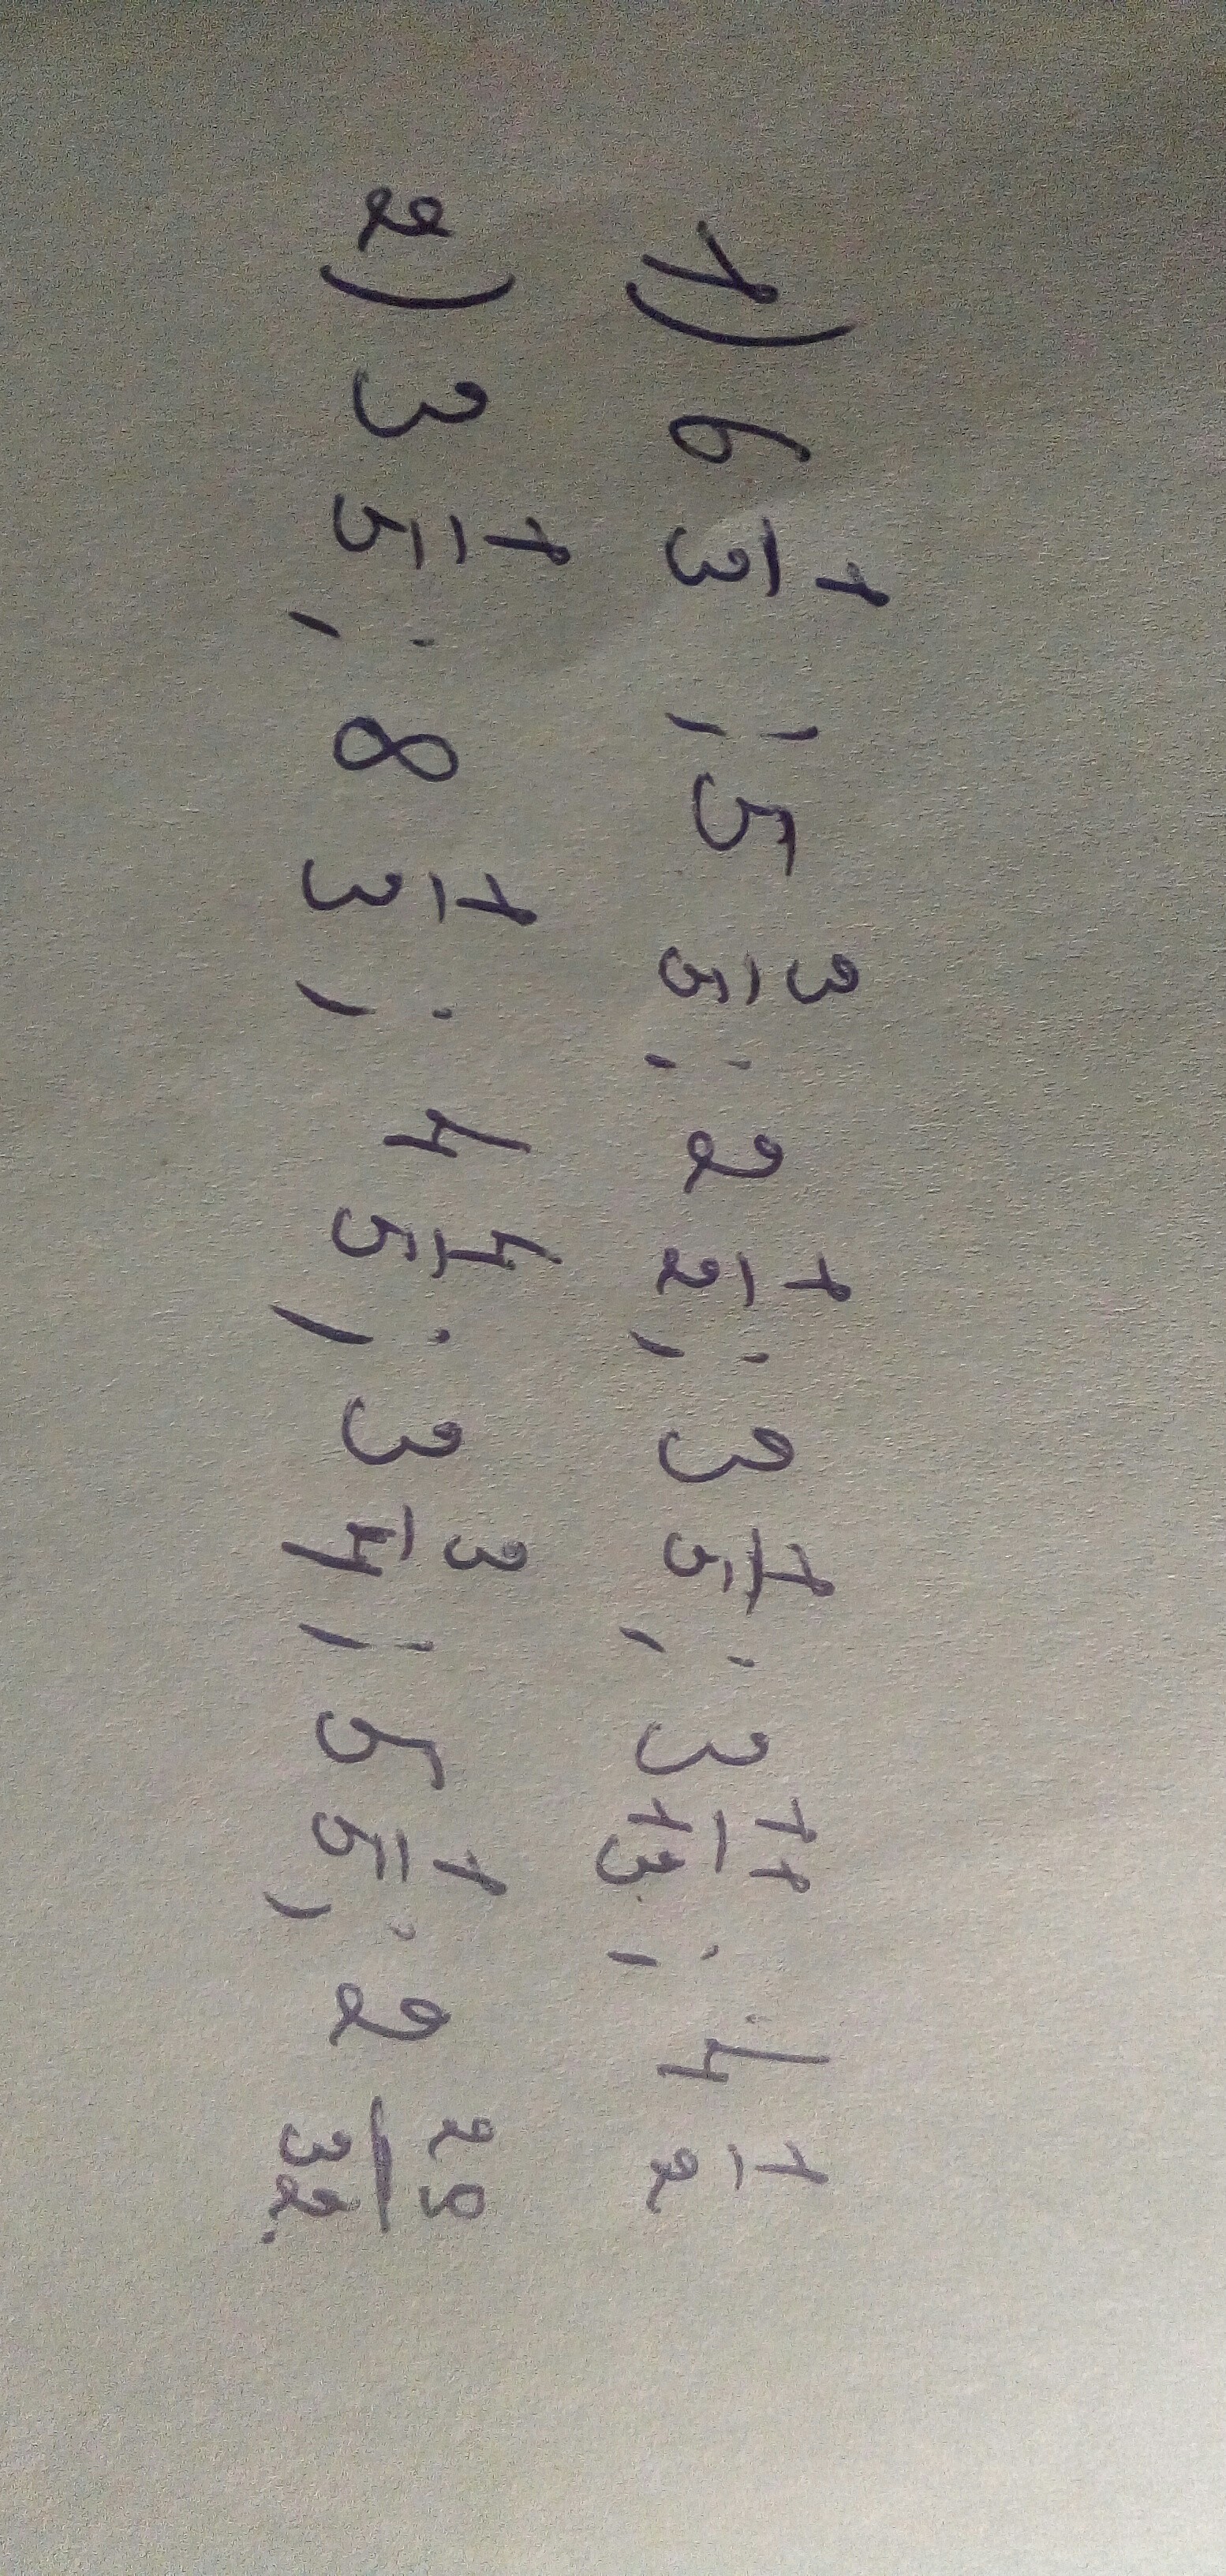 1) 6 1/3 ; 5 3/5 ; 2 1/2 ; 3 1/5 ; 3 11/13 ; 4 1/2
2) 3 1/5 ; 8 1/3 ; 4 4/5 ; 3 3/4 ; 5 1/5 ; 2 29/32.